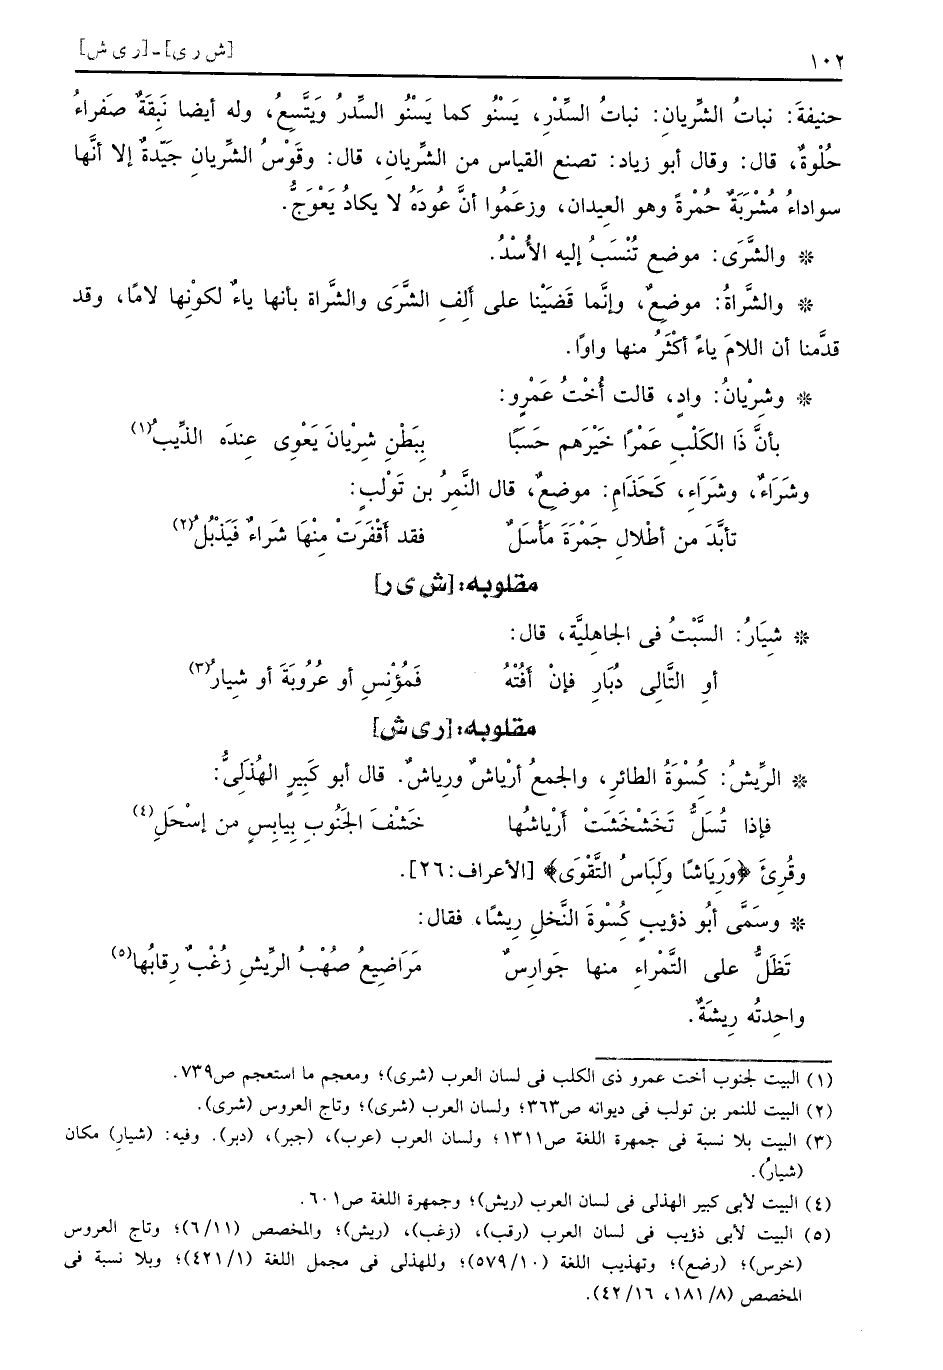 ١٠٢
[ش ر ى] - [ر ى ش]
حنيفةَ: نباتُ الشِّريانِ: نباتُ السِّدْرِ، يَسْنُو كما يَسْنُو السِّدرُ ويَتَّسِعُ، وله أيضا نَبِقَةٌ صفراءُ
حُلْوةٌ، قال: وقال أبو زياد: تصنع القياس من الشِّريانِ، قال: وقَوْسُ الشِّريانِ جَيِّدةٌ إلا أنَّها
سواداءُ مُشْرَبَةٌ حُمْرةً وهو العِيدان، وزعَمُوا أنَّ عُودَهُ لا يكادُ يَعْوَجُّ.
* والشَّرَى: موضع تُنْسَبُ إليه الأُسْدُ.
* والشَّراةُ: موضعٌ، وإنَّما قَضَيْنا على ألِفِ الشَّرَى والشَّراة بأنها ياءٌ لكونِها لامًا، وقد
قدَّمنا أن اللامَ ياءً أكْثَرُ منها واوًا.
* وشِرْيانُ: وادٍ، قالت أُخْتُ عَمْرٍو:
بأنَّ ذَا الكَلْبِ عَمْرًا خَيْرَهم حَسَبًا بِبَطْنِ شِرْيانَ يَعْوِى عِندَه الذِّيبُ(١)
وشَرَاءٌ، وشَرَاءِ، كَحَذَامِ: موضعٌ، قال النَّمِرُ بن تَوْلَبٍ:
تأبَّدَ من أطْلالِ جَمْرَةَ مَأْسَلٌ فقد أقْفَرَتْ مِنْهَا شَراءٌ فَيَذْبُلُ(٢)
مقلوبه: [ش ى ر]
* شِيَارُ: السَّبْتُ فى الجاهليَّة، قال:
أوِ التَّالِى دُبَارِ فإنْ أفُتْهُ فَمُؤْنِسِ أو عَرُوبَةَ أو شِيارُ(٣)
مقلوبه: [ر ى ش]
* الرِّيشُ: كُسْوَةُ الطائرِ، والجمعُ أرْياشٌ ورِياشٌ. قال أبو كَبِيرٍ الهُذَلِىُّ:
فإذا تُسَلُّ تَخَشْخَشَتْ أرْياشُها خَشْفَ الجَنُوبِ بِيابِسٍ من إسْحِلِ(٤)
وقُرِئَ ﴿ورِيَاشًا ولِبَاسُ التَّقْوَى﴾ [الأعراف:٢٦].
* وسَمَّى أبُو ذؤيبٍ كُسْوةَ النَّخلِ رِيشًا، فقال:
تَظَلُّ على الثَّمْراءِ منها جَوارِسٌ مَرَاضِيعُ صُهْبُ الرِّيشِ زُغْبٌ رِقابُها(٥)
واحِدتُه رِيشَةٌ.
(١) البيت لجنوب أخت عمرو ذى الكلب فى لسان العرب (شرى)؛ ومعجم ما استعجم ص٧٣٩.
(٢) البيت للنمر بن تولب فى ديوانه ص٣٦٣؛ ولسان العرب (شرى)؛ وتاج العروس (شرى).
(٣) البيت بلا نسبة فى جمهرة اللغة ص١٣١١؛ ولسان العرب (عرب)، (جبر)، (دبر). وفيه: (شيارِ) مكان
(شيارُ).
(٤) البيت لأبى كبير الهذلى فى لسان العرب (ريش)؛ وجمهرة اللغة ص٦٠١.
(٥) البيت لأبى ذؤيب فى لسان العرب (رقب)، (زغب)، (ريش)؛ والمخصص (٦/١١)؛ وتاج العروس
(خرس)؛ (رضع)؛ وتهذيب اللغة (٥٧٩/١٠)؛ وللهذلى فى مجمل اللغة (٤٢١/١)؛ وبلا نسبة فى
المخصص (١٨١/٨، ٤٢/١٦).